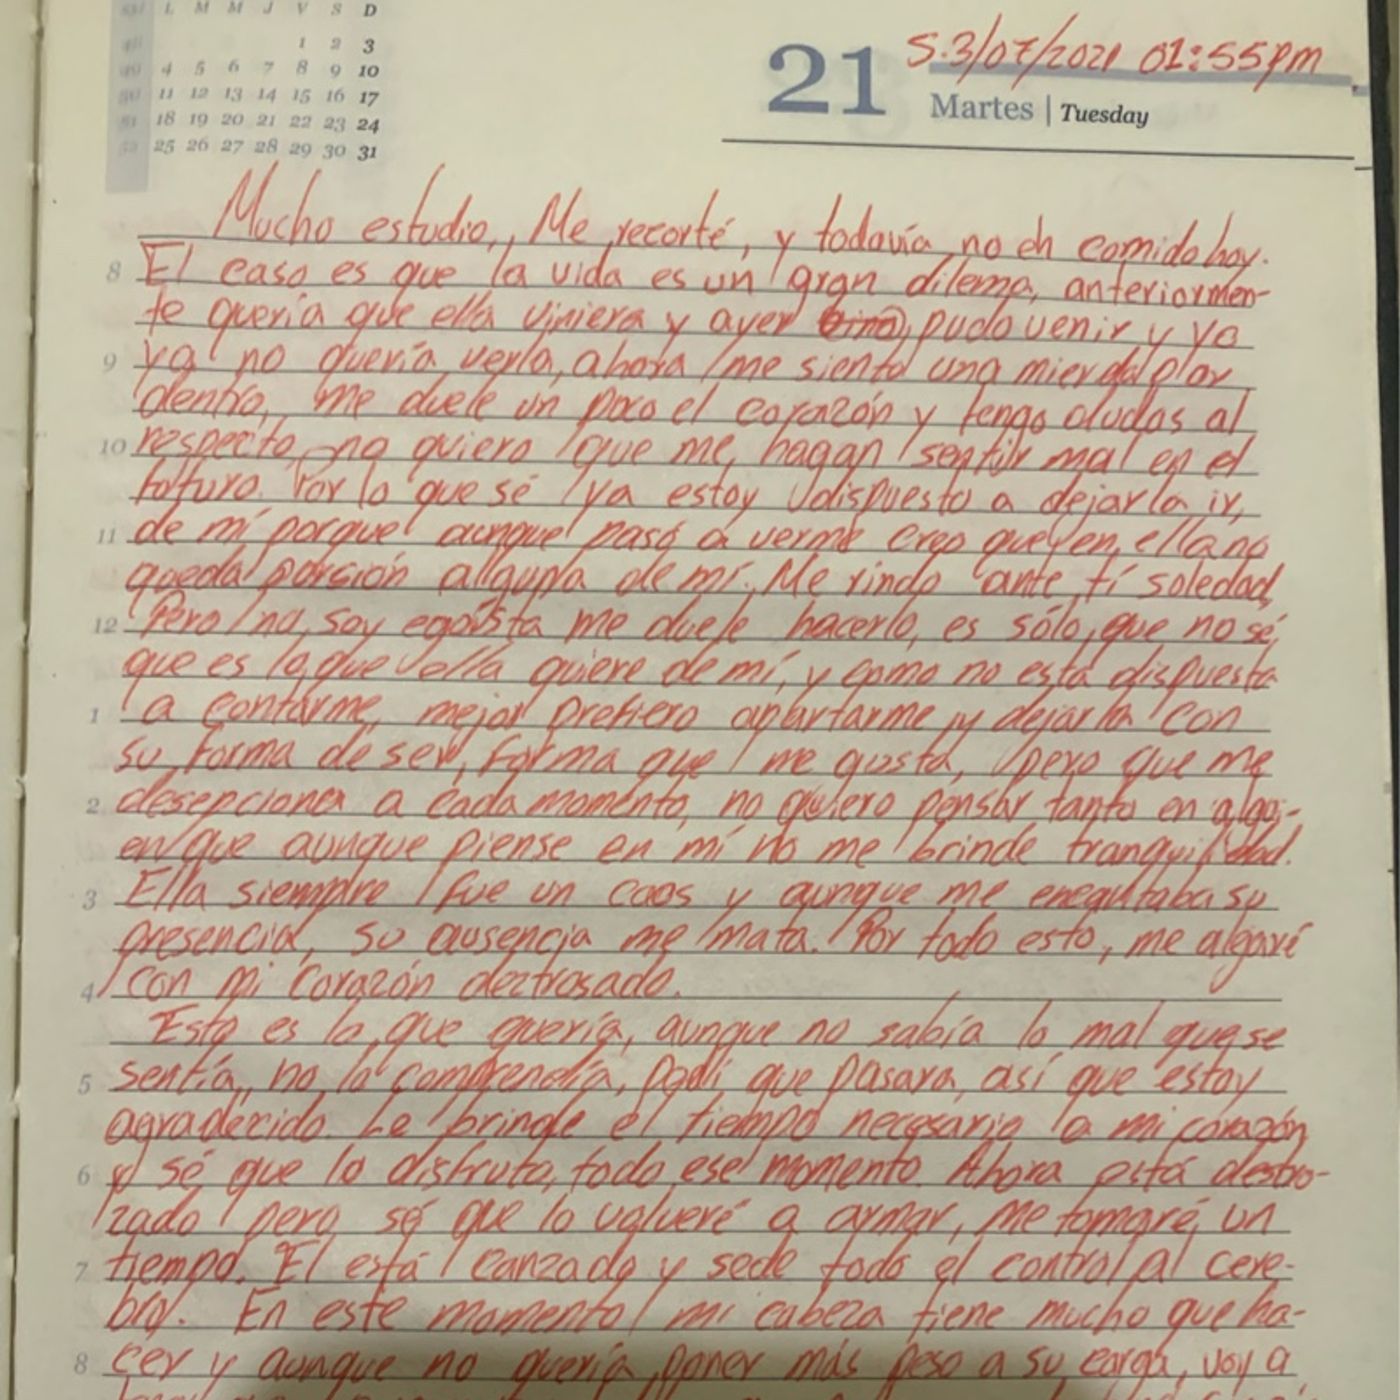 SM L M M J V S D
48 1 2 3
49 4 5 6 7 8 9 10
50 11 12 13 14 15 16 17
51 18 19 20 21 22 23 24
52 25 26 27 28 29 30 31
S.3/07/2021 01:55pm
21
Martes | Tuesday
Mucho estudio, Me recorté, y todavía no eh comido hoy.
8 El caso es que la vida es un gran dilema, anteriormen-
te quería que ella viniera y ayer pudo venir y yo
9 ya no quería verla, ahora me siento una mierda por
dentro, me duele un poco el corazón y tengo dudas al
10 respecto, no quiero que me hagan sentir mal en el
futuro. Por lo que sé ya estoy dispuesto a dejarla ir,
11 de mí porque aunque pasó a verme creo que en ella no
queda porsión alguna de mí. Me rindo ante tí soledad,
12 Pero no soy egoísta me duele hacerlo, es sólo que no sé
que es lo que ella quiere de mí, y como no está dispuesta
1 a contarme, mejor prefiero apartarme y dejarla con
su forma de ser, forma que me gusta, pero que me
2 desepciona a cada momento, no quiero pensar tanto en algui-
en que aunque piense en mí no me brinde tranquilidad.
3 Ella siempre fue un caos y aunque me encantaba su
presencia, su ausencia me mata. Por todo esto, me alejaré
4 con mi corazón deztrosado.
Esto es lo que quería, aunque no sabía lo mal que se
5 sentía, no lo comprendía, pedí que pasara, así que estoy
agradecido. Le brinde el tiempo necesario a mi corazón
6 y sé que lo disfruto, todo ese momento. Ahora está destro-
zado pero sé que lo volveré a armar, me tomaré un
7 tiempo. El está canzado y sede todo el control al cere-
bro. En este momento mi cabeza tiene mucho que ha-
8 cer y aunque no quería poner más peso a su carga, voy a